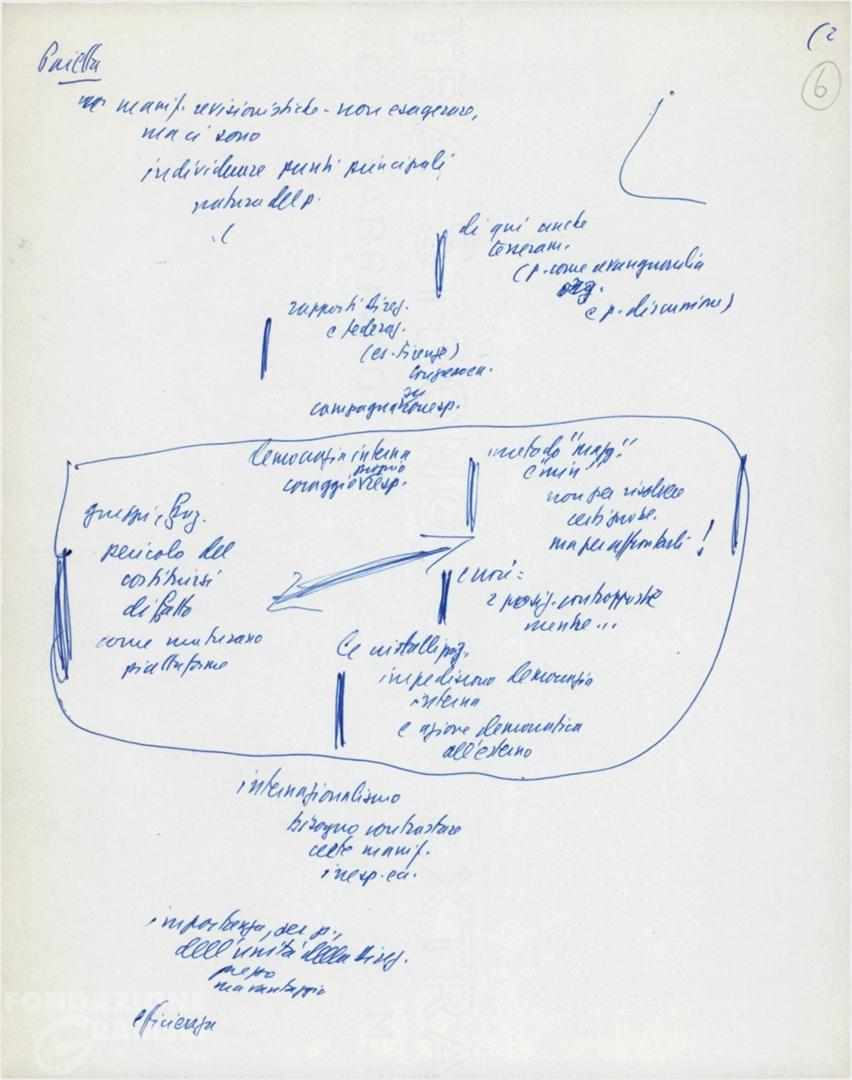 (2
6
Paietta
manif. revisionistiche - non esagerare,
ma ci sono
individuare punti principali
natura del p.
di qui anche
tesseram.
(p. come avanguardia
org.
e p. discussione)
rapporti direz.
e federaz.
(es. Firenze)
su
campagna
democrazia interna
proprio
coraggio resp.
metodo "magg."
e "min"
non per risolvere
certi probl.
ma per affrontarli!
gruppi e
pericolo del
costituirsi
di fatto
come maturano
piattaforme
e noi =
2 posiz. contrapposte
mentre...
(e cristallizzaz.
impediscono democrazia
interna
e azione democratica
all'esterno
internazionalismo
bisogna contrastare
certe manif.
importanza, per p.,
dell'unità della direz.
prezzo
ma vantaggio
efficienza
FONDAZIONE
GRAMSCI